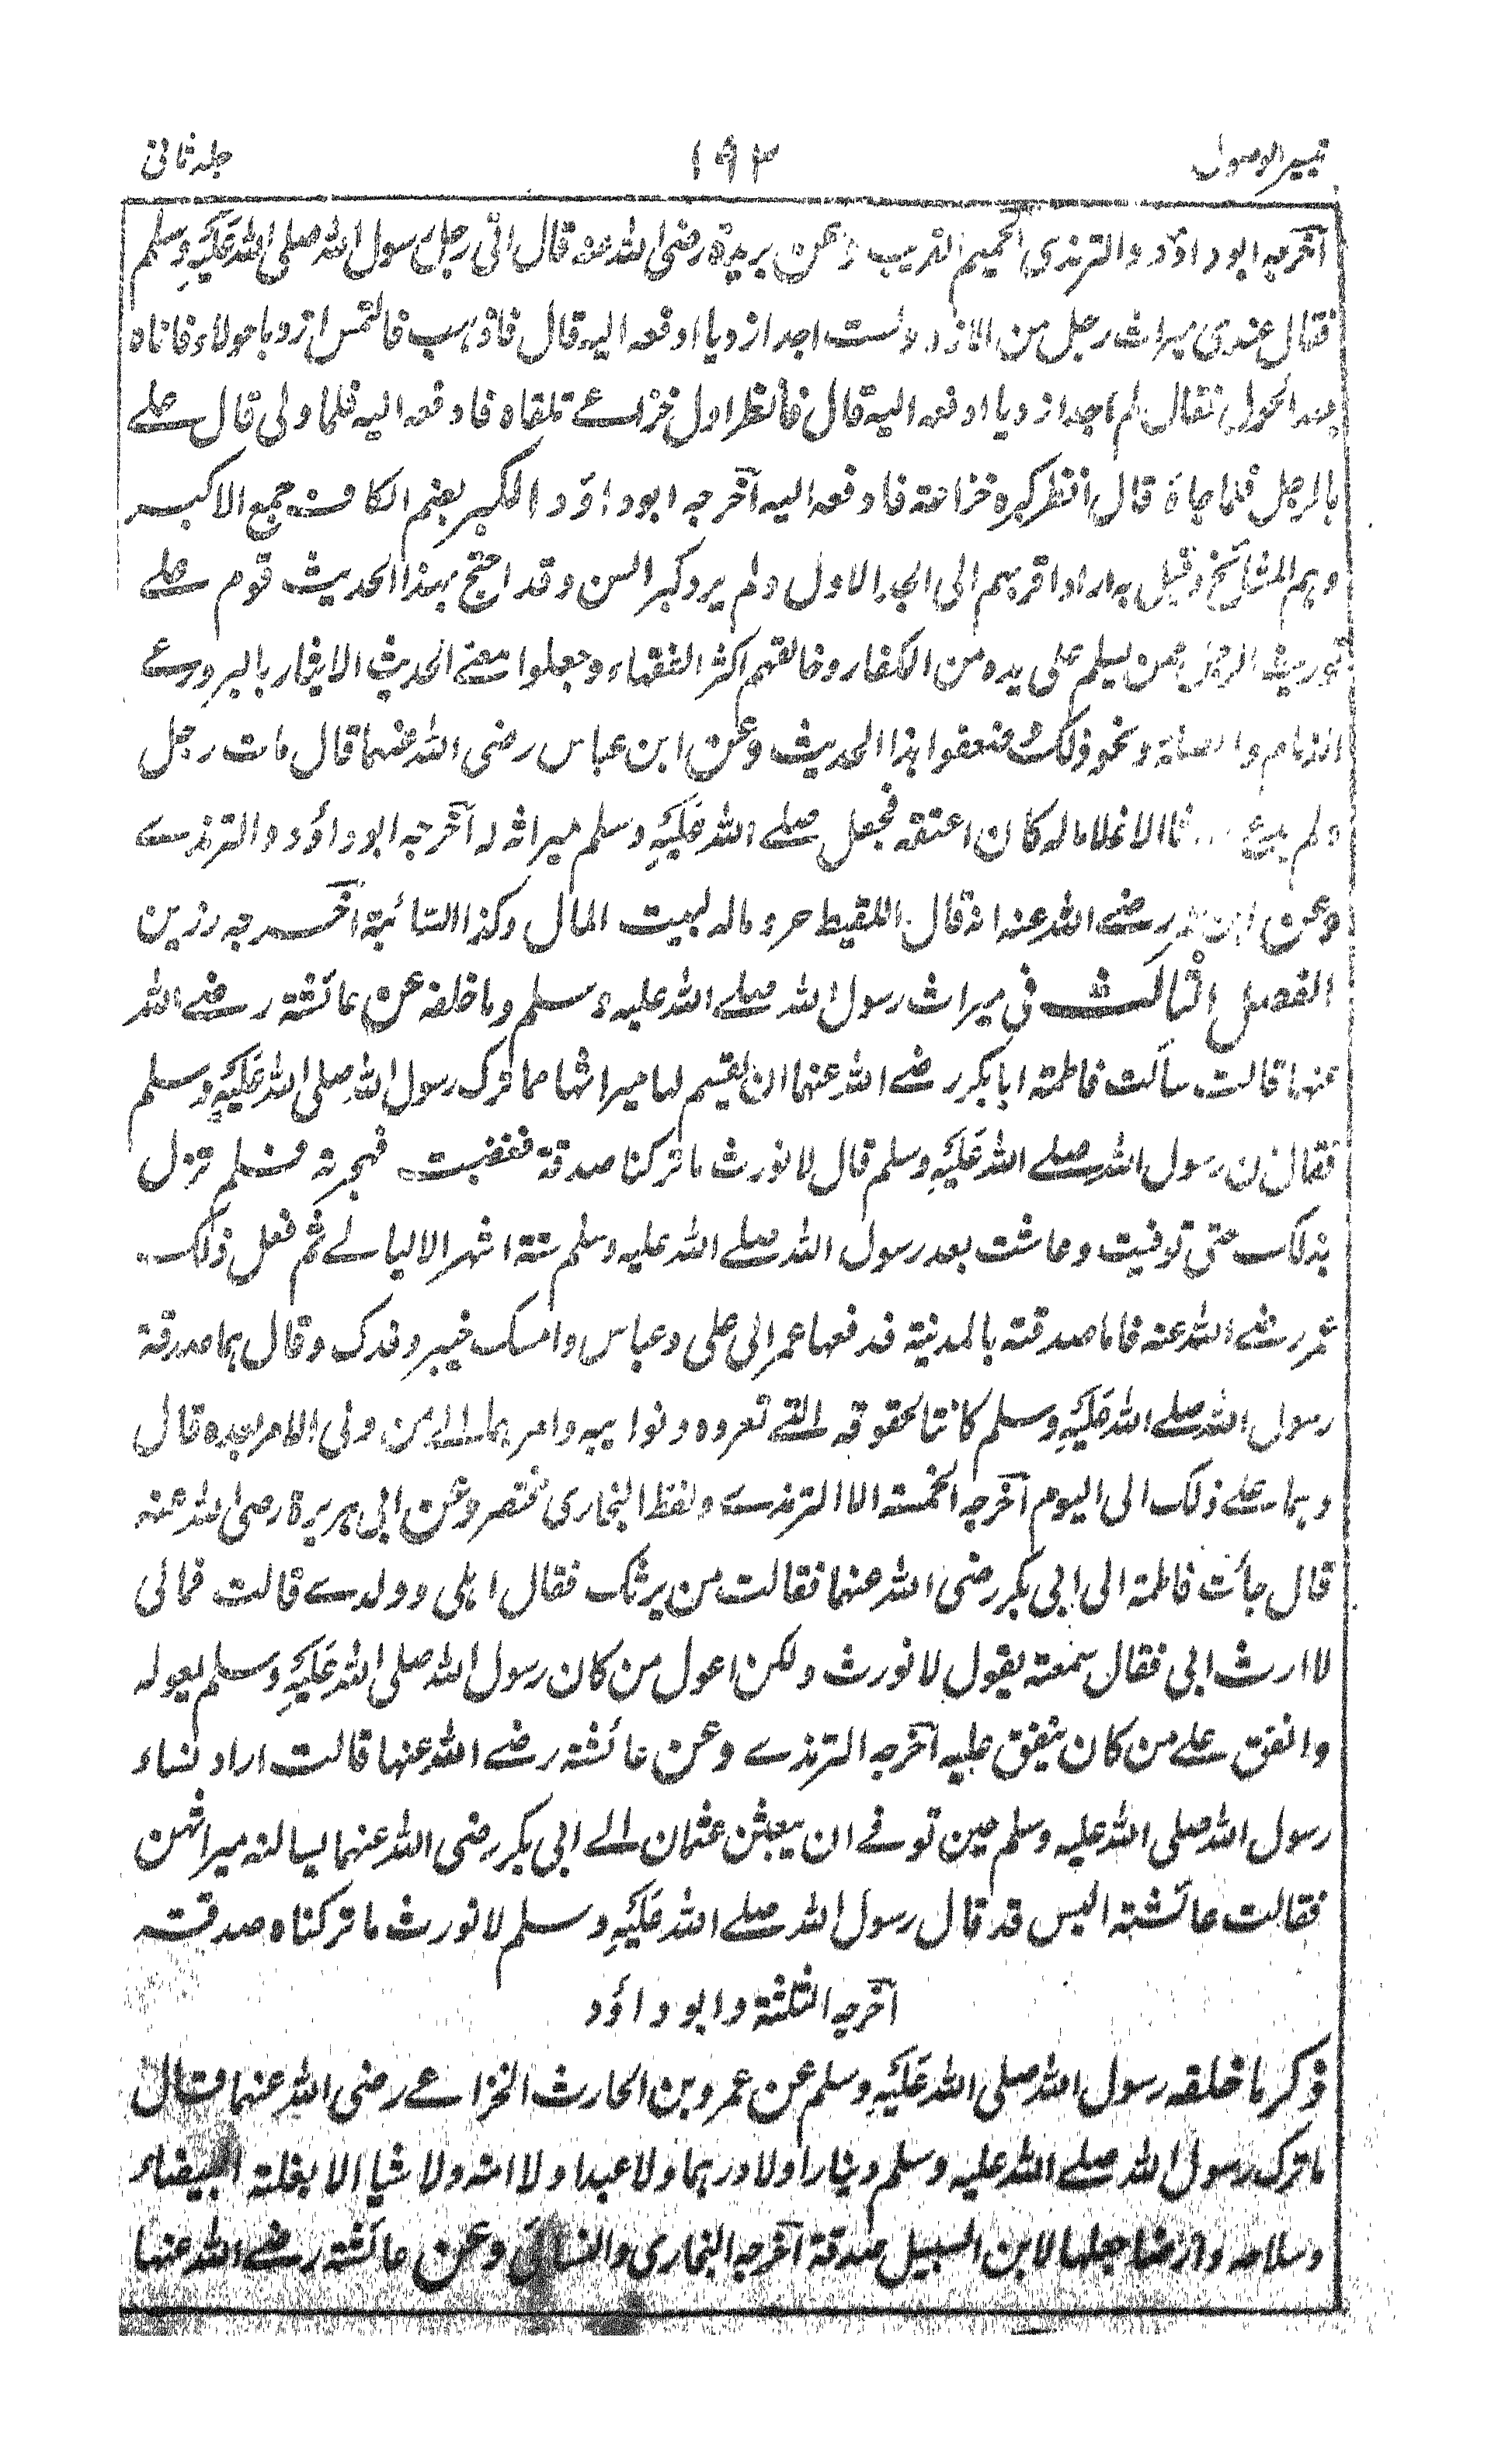 تيسير الاصول ۱۹۳ جلد ثانی
آخرجه ابو داؤد والترمذی الحميم القريب وعن بريدة رضی الله عنه قال اتی رجل رسول الله صلی الله عليه وسلم
فقال عندی ميراث رجل من الازد ولست اجد ازديا ادفعه اليه قال فاذهب فالتمس ازديا حولا فاتاه
بعد الحول فقال لم اجد ازديا ادفعه اليه قال فانظر اول خزاعے تلقاه فادفعه اليه فلما ولی قال علے
بالرجل فلما جاء قال انظر كبر خزاعة فادفعه اليه آخرجه ابو داؤد الكبر بضم الكاف جمع الاكبر
وهم المشائخ وقيل به اراد اقربهم الی الجد الاول ولم يرد كبر السن وقد احتج بهذا الحديث قوم علے
توريث الرجل ممن يسلم علی يده من الكفار وخالفهم اكثر الفقهاء وجعلوا معنے الحديث الايثار بالبر ورعے
الذمام والصلة ونحو ذلك وضعفوا هذا الحديث وعن ابن عباس رضی الله عنهما قال مات رجل
ولم يدع الا غلاما له كان اعتقه فجعل صلے الله عليه وسلم ميراثه له آخرجه ابو داؤد والترمذے
وعن رضے الله عنه انه قال اللقيط حر وماله لبيت المال وكذا السائبة آخرجه رزين
الفصل الثالث فی ميراث رسول الله صلے الله عليه وسلم وما خلفه عن عائشة رضے الله
عنها قالت سألت فاطمة ابا بكر رضے الله عنهما ان يقسم لها ميراثها مما ترك رسول الله صلی الله عليه وسلم
فقال ان رسول الله صلے الله عليه وسلم قال لا نورث ما تركنا صدقة فغضبت فهجرته فلم تزل
بذلك حتی توفيت وعاشت بعد رسول الله صلے الله عليه وسلم ستة اشهر الا ليالے ثم فعل ذلك
عمر رضے الله عنه فاما صدقته بالمدنية فدفعها عمر الی علی وعباس وامسك خيبر وفدك وقال هما صدقة
رسول الله صلے الله عليه وسلم كانتا لحقوقه التے تعروه ونوايبه وامرهما الے من ولی الامر بعده قال
وهما علے ذلك الی اليوم آخرجه الخمسة الا الترمذے ولفظ البخاری مختصر وعن ابی هريرة رضی الله عنه
قال جأت فاطمة الی ابی بكر رضی الله عنهما فقالت من يرثك فقال اهلی وولدے قالت فمالی
لا ارث ابی فقال سمعته يقول لا نورث ولكن اعول من كان رسول الله صلی الله عليه وسلم يعوله
وانفق علے من كان ينفق عليه آخرجه الترمذے وعن عائشة رضے الله عنها قالت اراد نساء
رسول الله صلی الله عليه وسلم حين توفے ان يبعثن عثمان الے ابی بكر رضی الله عنهما يسالنه ميراثهن
فقالت عائشة اليس قد قال رسول الله صلے الله عليه وسلم لا نورث ما تركناه صدقة
آخرجه الثلثة وابو داؤد
ذكر ما خلفه رسول الله صلی الله عليه وسلم عن عمرو بن الحارث الخزاعے رضی الله عنهما قال
ما ترك رسول الله صلے الله عليه وسلم دينارا ولا درهما ولا عبدا ولا امة ولا شيا الا بغلته البيضاء
وسلاحه وارضا جعلها لابن السبيل صدقة آخرجه البخاری والنسائی وعن عائشة رضے الله عنها